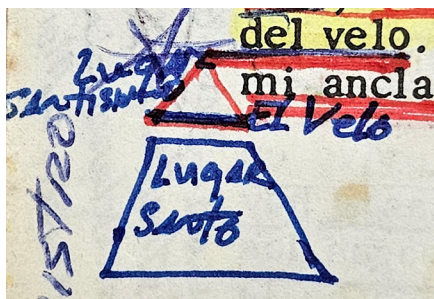 del velo.
mi ancla
Lugar
SANTISIMO
EL Velo
Lugar
Santo